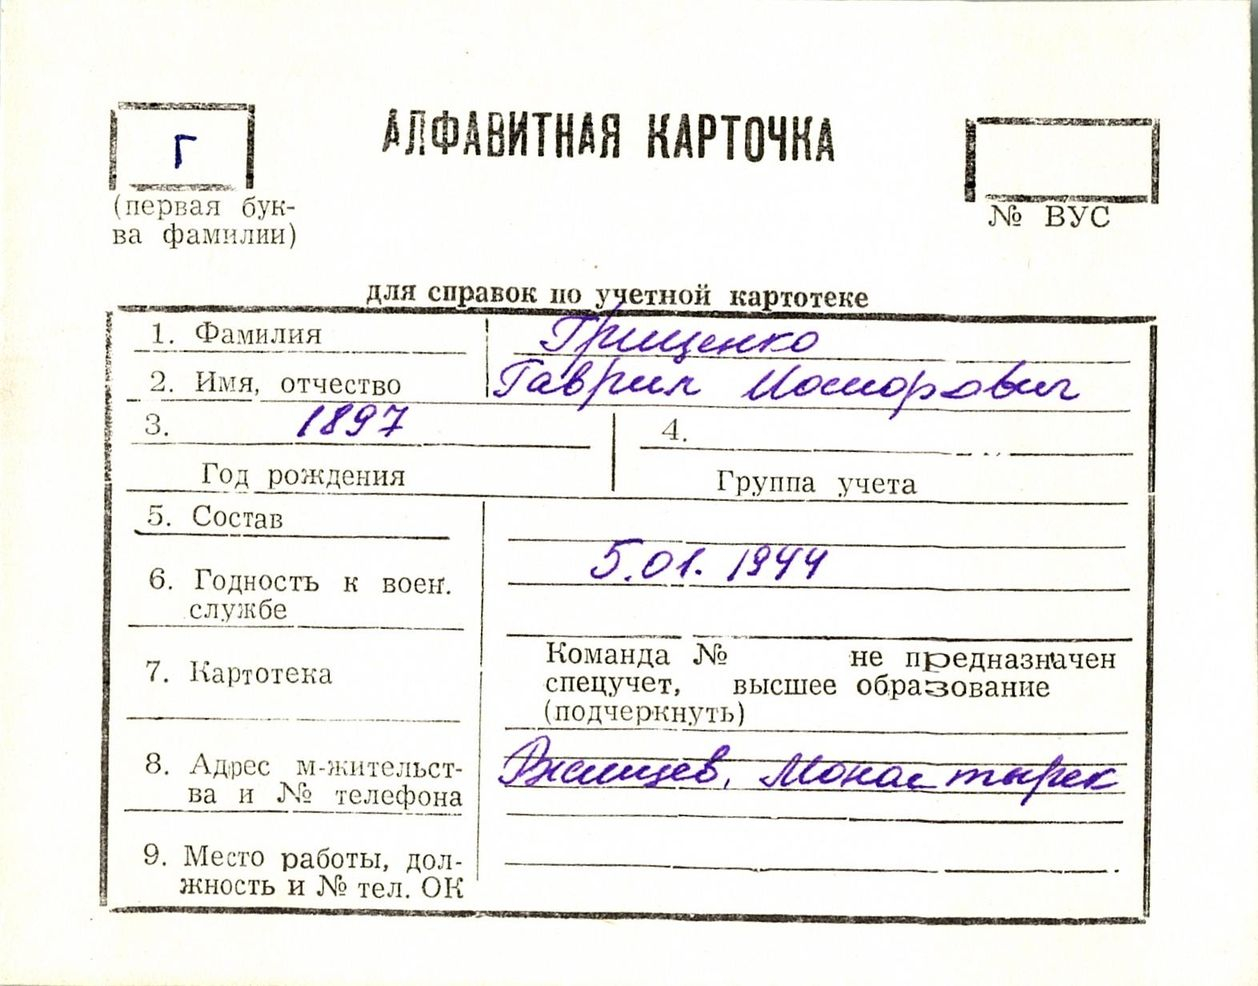 Г
АЛФАВИТНАЯ КАРТОЧКА
(первая бук-
ва фамилии)
№ ВУС
для справок по учетной картотеке
1. Фамилия Грищенко
2. Имя, отчество Гаврил
3. 1897 4.
Год рождения Группа учета
5. Состав
5.01.1944
6. Годность к воен.
службе
7. Картотека
Команда № не предназначен
спецучет, высшее образование
(подчеркнуть)
8. Адрес м-жительст-
ва и № телефона
Ржищев, Монастырек
9. Место работы, дол-
жность и № тел. ОК